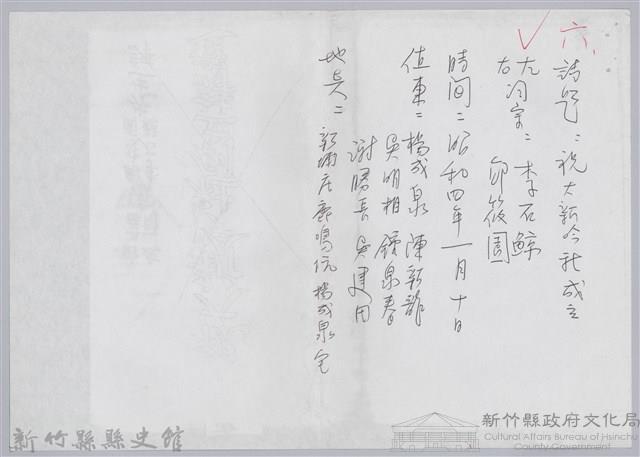 六、
詩題：祝大新吟社成立
左詞宗：李石鯨
右　　　邱筱園
時间：昭和四年一月十日
值東：楊成泉 陳新龍
吳明相 鍾泉春
謝曙長 吳建田
地点：新埔庄鹿鳴坑楊成泉宅
新竹縣縣史館
新竹縣政府文化局
Cultural Affairs Bureau of Hsinchu
County Government